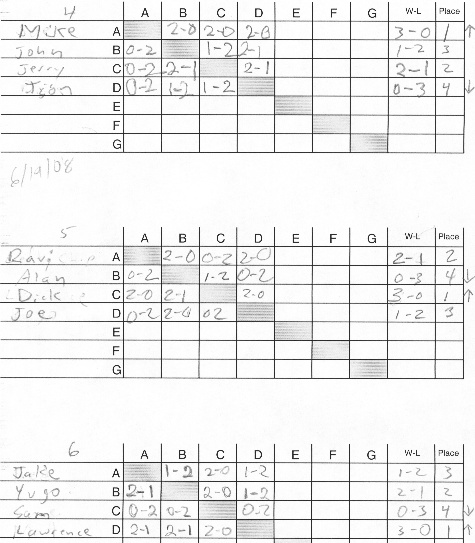 4 A B C D E F G W-L Place
Mike A 2-0 2-0 2-0 3-0 1 ↑
John B 0-2 1-2 2-1 1-2 3
Jerry C 0-2 2-1 2-1 2-1 2
D 0-2 1-2 1-2 0-3 4 ↓
E
F
G
6/19/08
5 A B C D E F G W-L Place
Ravi A 2-0 0-2 2-0 2-1 2
Alan B 0-2 1-2 0-2 0-3 4 ↓
Dick C 2-0 2-1 2-0 3-0 1 ↑
Joe D 0-2 2-0 02 1-2 3
E
F
G
6 A B C D E F G W-L Place
Jake A 1-2 2-0 1-2 1-2 3
Yugo B 2-1 2-0 1-2 2-1 2
Sam C 0-2 0-2 0-2 0-3 4 ↓
Lawrence D 2-1 2-1 2-0 3-0 1 ↑